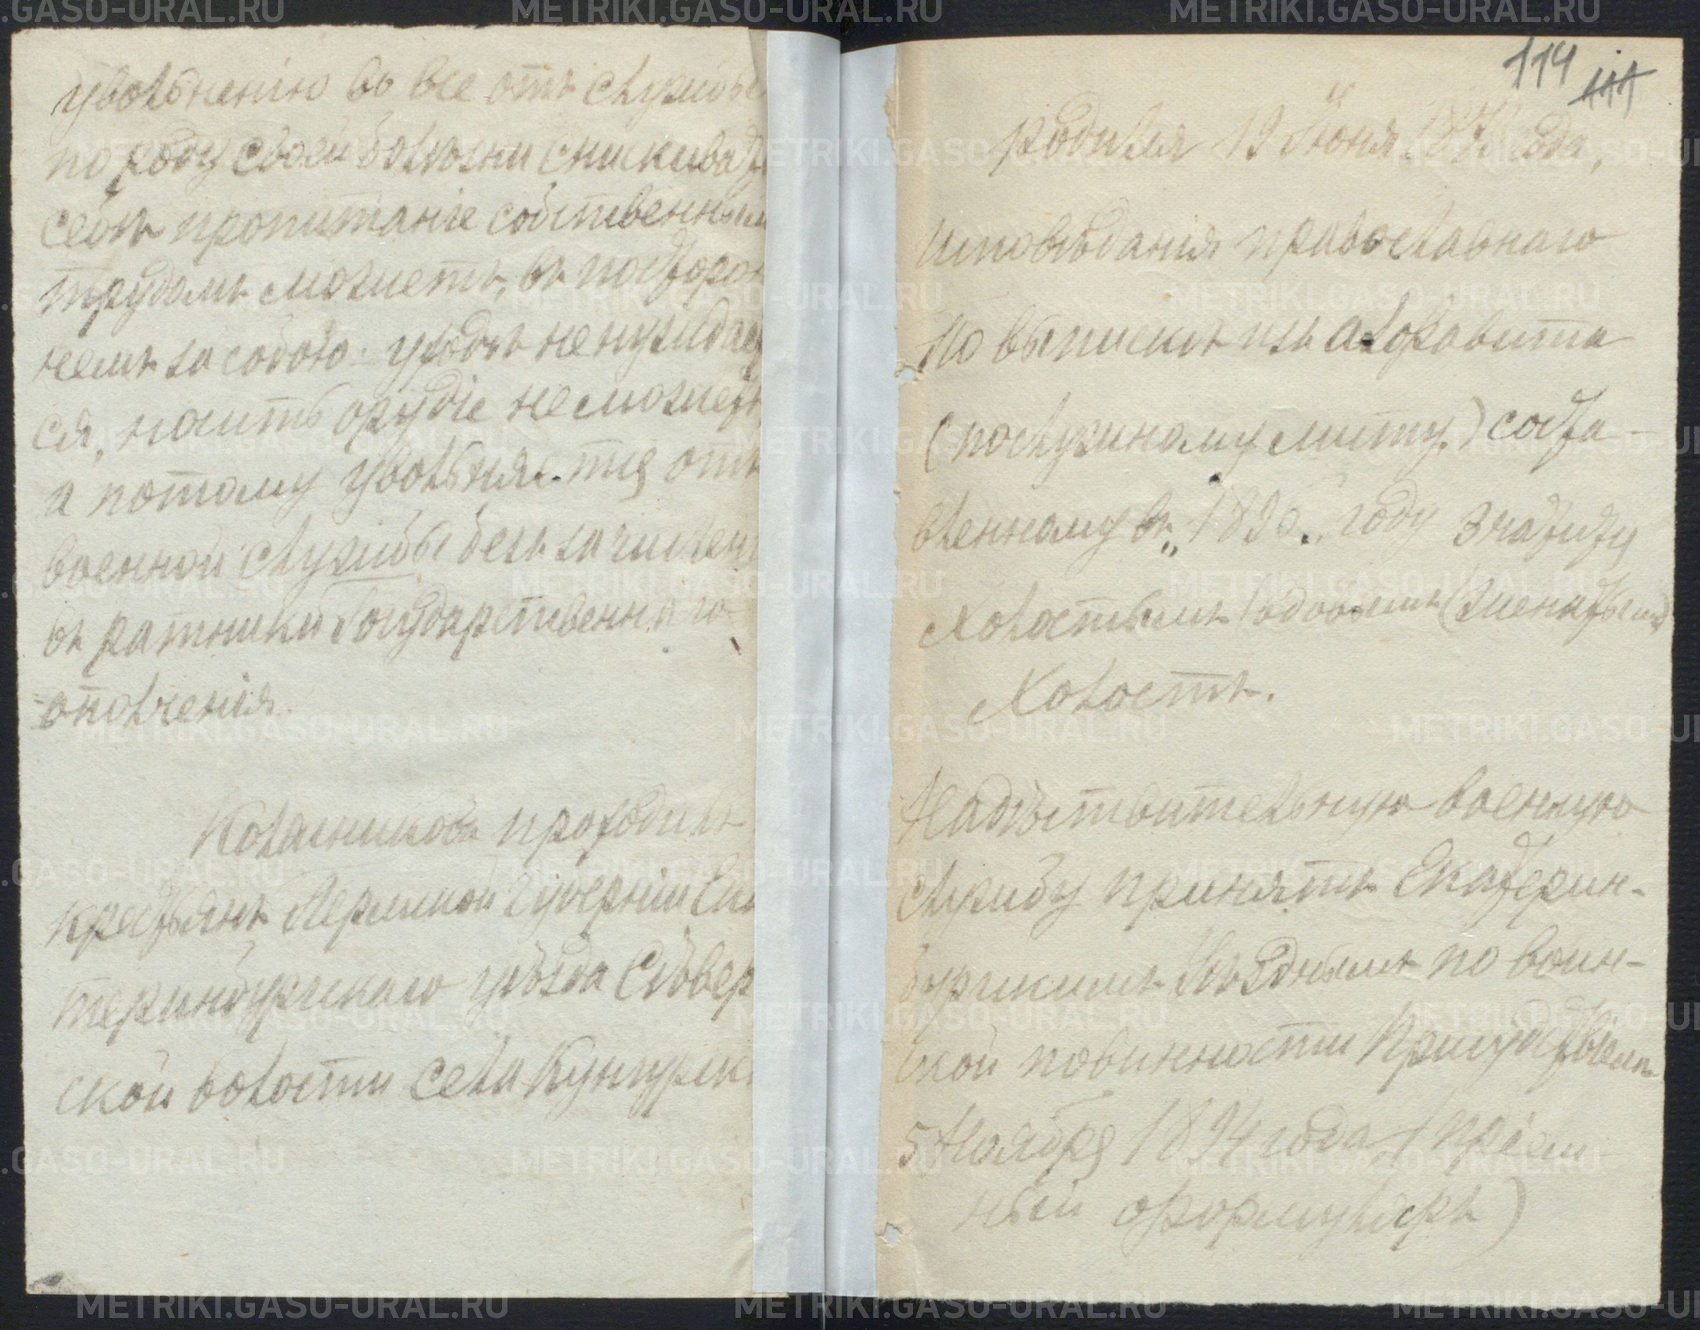 увольненію во все отъ службы
по роду своей болѣзни снискивать
себѣ пропитаніе собственнымъ
трудомъ можетъ, въ посторон
немъ за собою уходѣ не нуждает
ся, носить орудіе не можетъ
а потому увольняется отъ
военной службы безъ зачислен
въ ратники Государственнаго
ополченія.
проходитъ
крестьянъ Пермской Губерніи Ека
теринбургскаго уѣзда Сѣвер
ской волости села Кунгурск
114 111
родился 19 Іюня 187 года,
исповѣданія православнаго
по выпискѣ изъ алфавита
(послужному листу) соста-
вленному въ "189 " году значится
Холостымъ вдовымъ (женатымъ)
Холостъ.
На дѣйствительную военную
службу принятъ Екатерин-
бургскимъ Уѣзднымъ по воин-
ской повинности Присутствіемъ
5 Ноября 1894 года (пріем
ный формуляръ)
METRIKI.GASO-URAL.RU